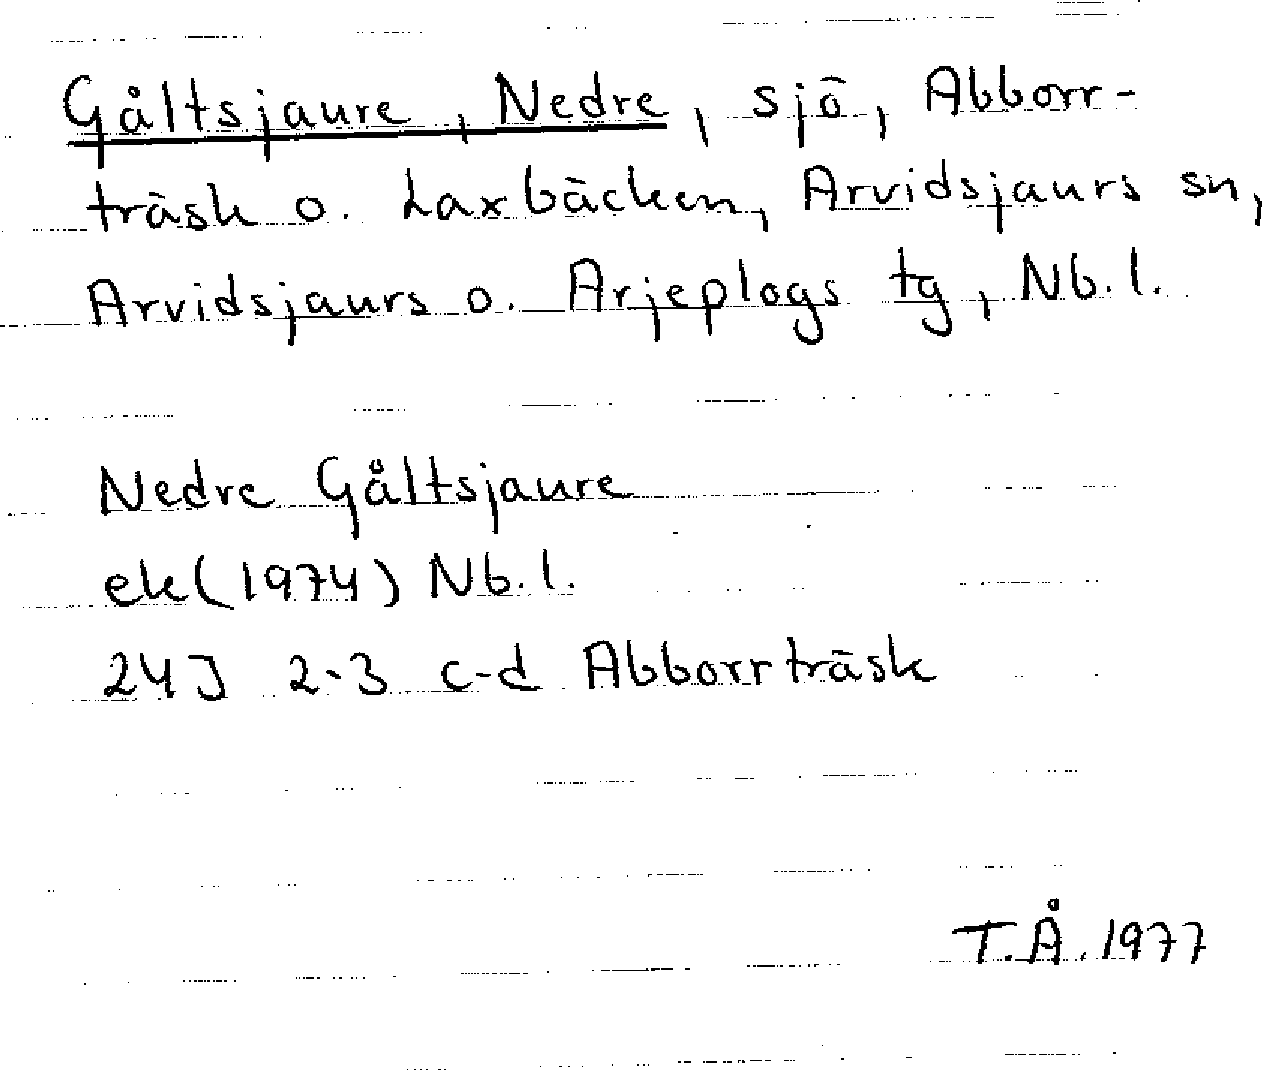 Gåltsjaure, Nedre, sjö, Abborr-
träsk o. Laxbäcken, Arvidsjaurs sn,
Arvidsjaurs o. Arjeplogs tg, Nb.l.
Nedre Gåltsjaure
ek(1974) Nb.l.
24J 2-3 c-d Abborrträsk
T.Å. 1977